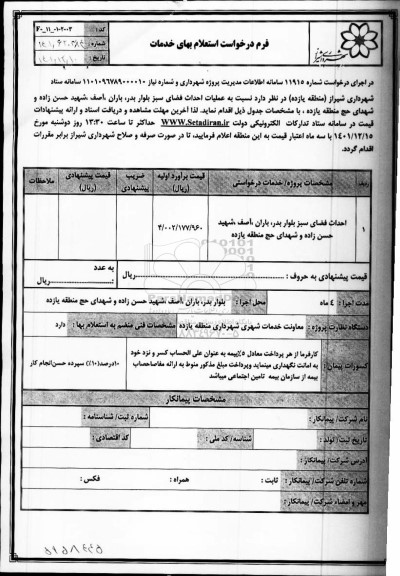 فرم درخواست استعلام بهای خدمات
کد: F۰_۱۱_۰۱۰۲۰۰۲
شماره:
تاریخ:
در اجرای درخواست شماره ۱۱۹۱۵ سامانه اطلاعات مدیریت پروژه شهرداری و شماره نیاز ۱۱۰۱۰۹۶۷۸۹۰۰۰۰۱۰ سامانه ستاد
شهرداری شیراز (منطقه یازده) در نظر دارد نسبت به عملیات احداث فضای سبز بلوار بدر، باران ،آصف ،شهید حسن زاده و
شهدای حج منطقه یازده ، با مشخصات جدول ذیل اقدام نماید. لذا آخرین مهلت مشاهده و دریافت اسناد و ارائه پیشنهادات
قیمت در سامانه ستاد تدارکات الکترونیکی دولت WWW.Setadiran.ir حداکثر تا ساعت ۱۳:۳۰ روز دوشنبه مورخ
۱۴۰۱/۱۲/۱۵ با سه ماه اعتبار قیمت به این منطقه اعلام فرمایید، تا در صورت صرفه و صلاح شهرداری شیراز برابر مقررات
اقدام گردد.
ردیف مشخصات پروژه/ خدمات درخواستی قیمت برآورد اولیه (ریال) ضریب پیشنهادی قیمت پیشنهادی (ریال) ملاحظات
۱ احداث فضای سبز بلوار بدر، باران ،آصف ،شهید حسن زاده و شهدای حج منطقه یازده ۴/۰۰۲/۱۷۷/۹۶۰
قیمت پیشنهادی به حروف : ریال به عدد : ریال
مدت اجرا : ۴ ماه محل اجرا : بلوار بدر، باران ،آصف ،شهید حسن زاده و شهدای حج منطقه یازده
دستگاه نظارت پروژه : معاونت خدمات شهری شهرداری منطقه یازده مشخصات فنی منضم به استعلام بها : دارد
کسورات پیمان: کارفرما از هر پرداخت معادل ۵٪بیمه به عنوان علی الحساب کسر و نزد خود
به امانت نگهداری مینماید وپرداخت مبلغ مذکور منوط به ارائه مفاصاحساب
بیمه از سازمان بیمه تامین اجتماعی میباشد
۱۰درصد(۱۰٪) سپرده حسن‌انجام کار
مشخصات پیمانکار
نام شرکت/ پیمانکار: شماره ثبت/ شناسنامه :
تاریخ ثبت/ تولد : شناسه/ کد ملی : کد اقتصادی :
آدرس شرکت/ پیمانکار:
شماره تلفن شرکت/ پیمانکار: ثابت : همراه : فکس :
مهر و امضاء شرکت/ پیمانکار: